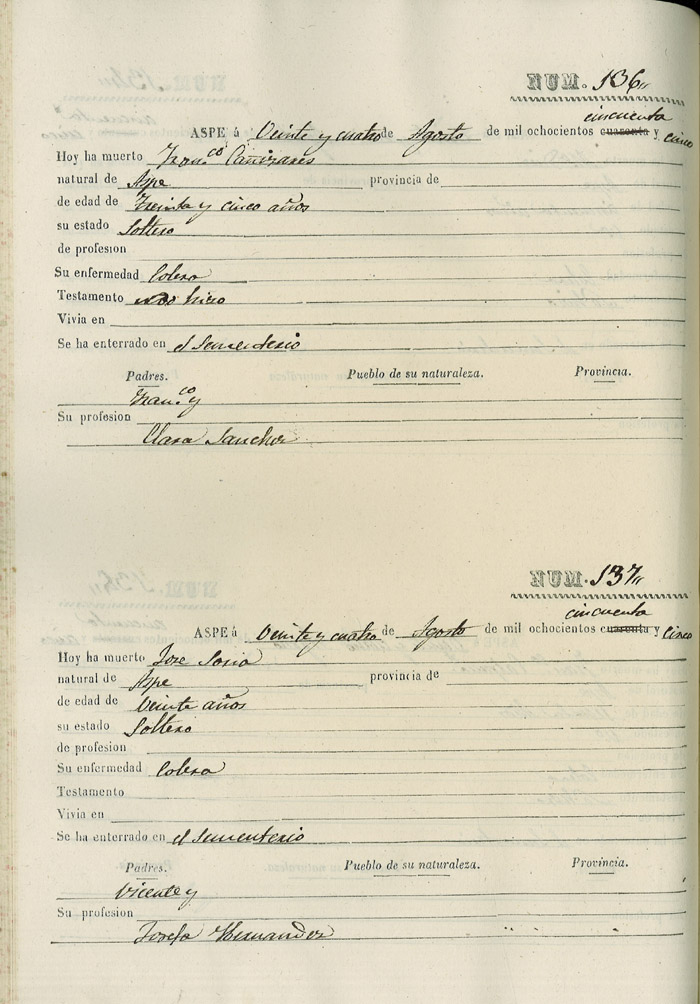 NUM. 136"
cincuenta
ASPE á Veinte y cuatro de Agosto de mil ochocientos cuarenta y cinco
Hoy ha muerto Fran.co Cañizares
natural de Aspe provincia de
de edad de Treinta y cinco años
su estado Soltero
de profesion
Su enfermedad Colera
Testamento no hizo
Vivia en
Se ha enterrado en el Sementerio
Padres. Pueblo de su naturaleza. Provincia.
Fran.co y
Su profesion
Clara Sanchez
NUM. 137"
cincuenta
ASPE á Veinte y cuatro de Agosto de mil ochocientos cuarenta y cinco
Hoy ha muerto Jose Soria
natural de Aspe provincia de
de edad de Veinte años
su estado Soltero
de profesion
Su enfermedad Colera
Testamento
Vivia en
Se ha enterrado en el Sementerio
Padres. Pueblo de su naturaleza. Provincia.
Vicente y
Su profesion
Josefa Hernandez